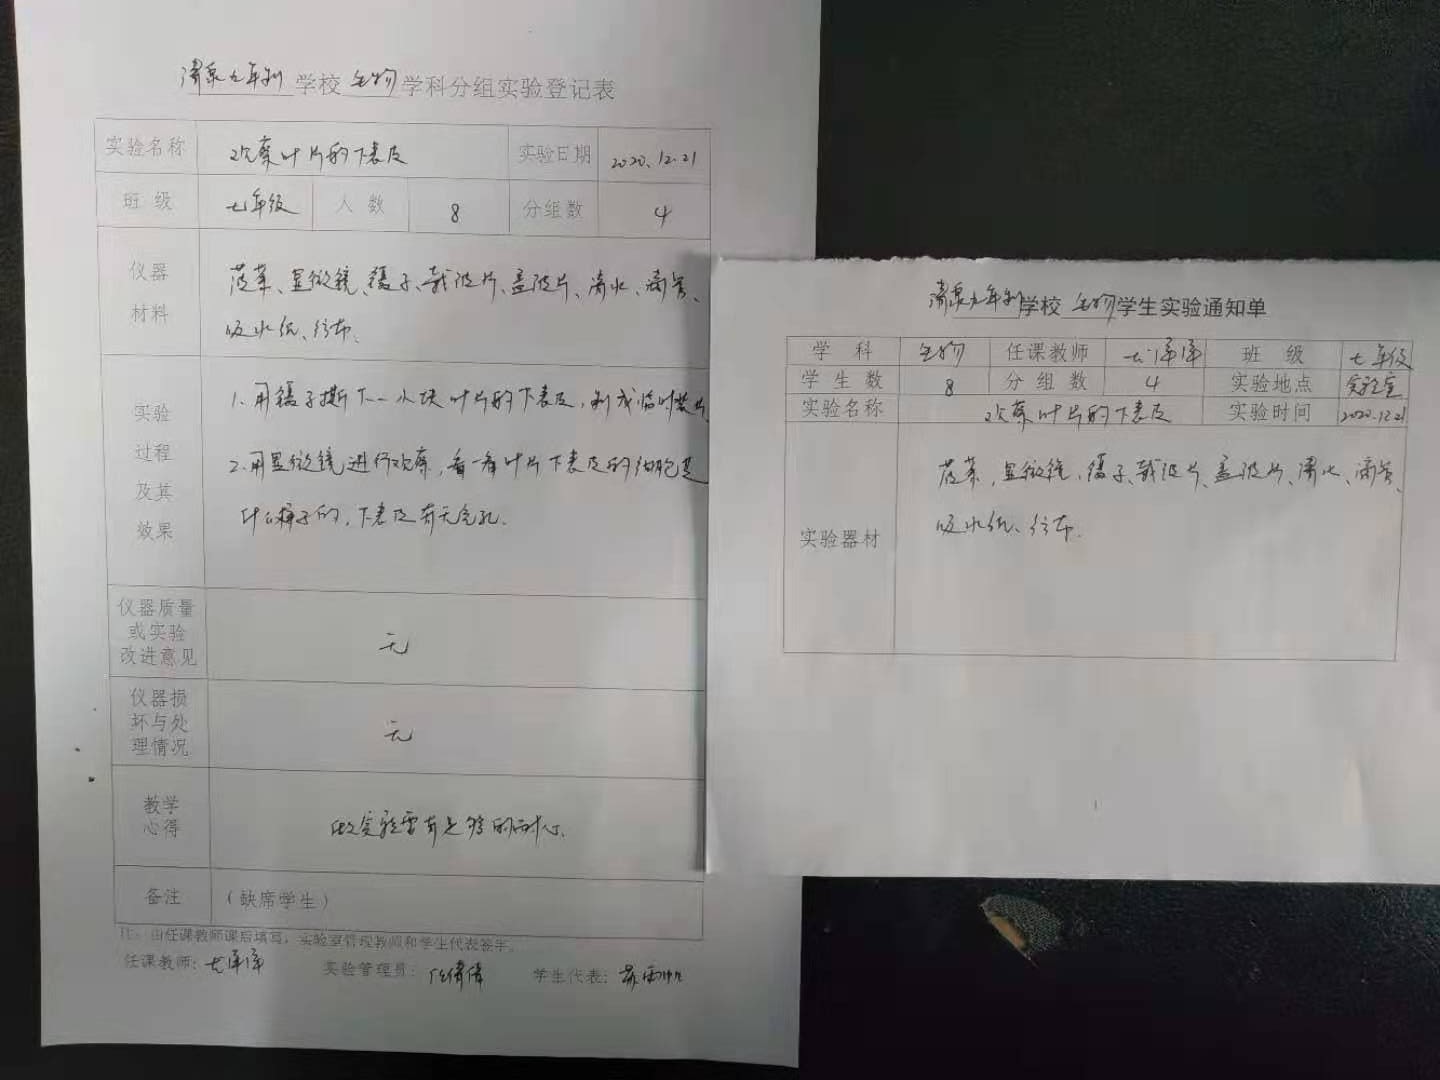 清泉九年制学校生物学科分组实验登记表
实验名称 观察叶片的下表皮 实验日期 2020.12.21
班级 七年级 人数 8 分组数 4
仪器材料
菠菜、显微镜、镊子、载玻片、盖玻片、清水、滴管、
吸水纸、纱布.
实验过程及其效果
1.用镊子撕下一小块叶片的下表皮,制成临时装片
2.用显微镜进行观察,看一看叶片下表皮的细胞是
什么样子的,下表皮有无气孔.
仪器质量或实验改进意见 无
仪器损坏与处理情况 无
教学心得 做实验需有足够的耐心.
备注 (缺席学生)
注:由任课教师课后填写,实验室管理教师和学生代表签字。
任课教师: 实验管理员: 学生代表:
清泉九年制学校生物学生实验通知单
学科 生物 任课教师 班级 七年级
学生数 8 分组数 4 实验地点 实验室
实验名称 观察叶片的下表皮 实验时间 2020.12.21
实验器材
菠菜、显微镜、镊子、载玻片、盖玻片、清水、滴管、
吸水纸、纱布.